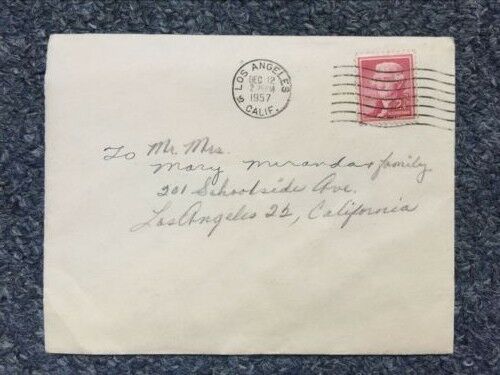 LOS ANGELES
CALIF.
DEC 12
1957
2¢
To Mr. Mrs.
Mary Miranda & family
201 Schoolside Ave.
Los Angeles 22, California